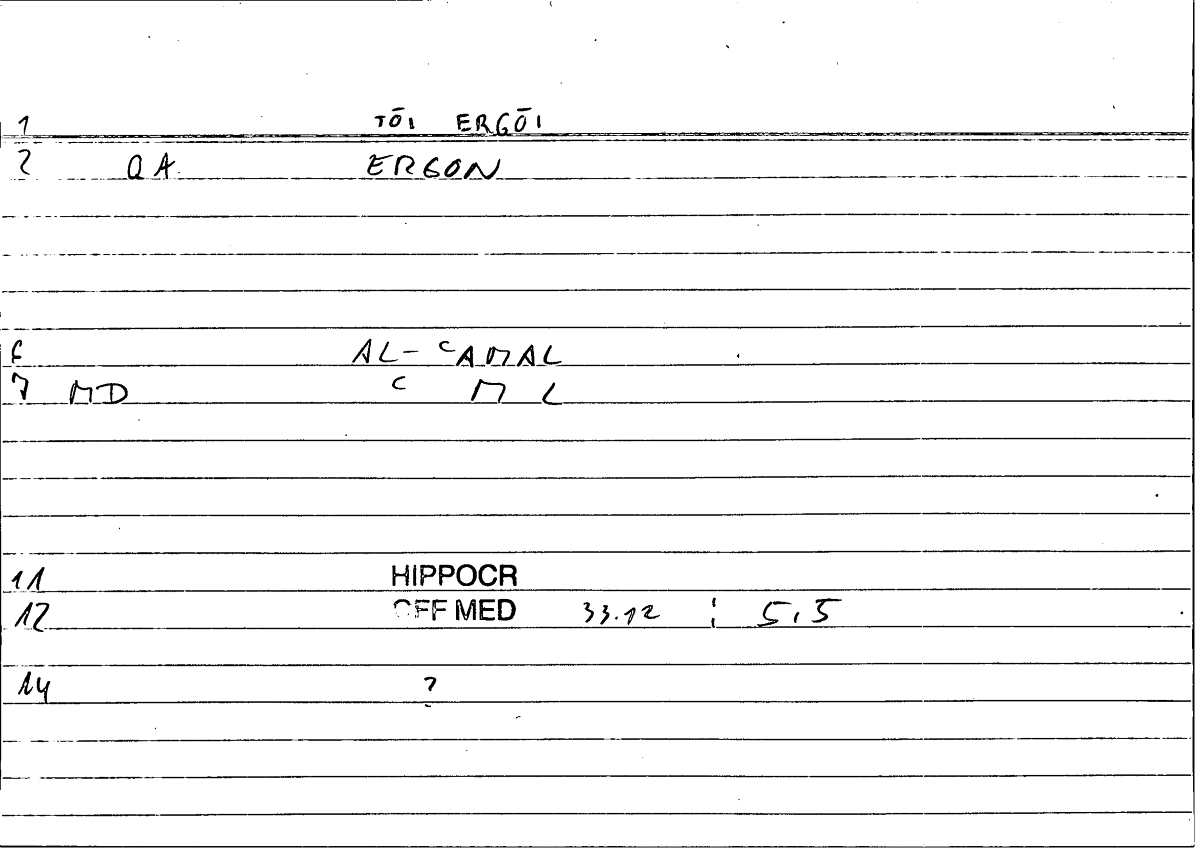 1 TŌI ERGŌI
2 QA ERGON
6 AL- ʿAMAL
7 MD ʿ M L
11 HIPPOCR
12 OFF MED 33.12 ; 5,5
14 ?